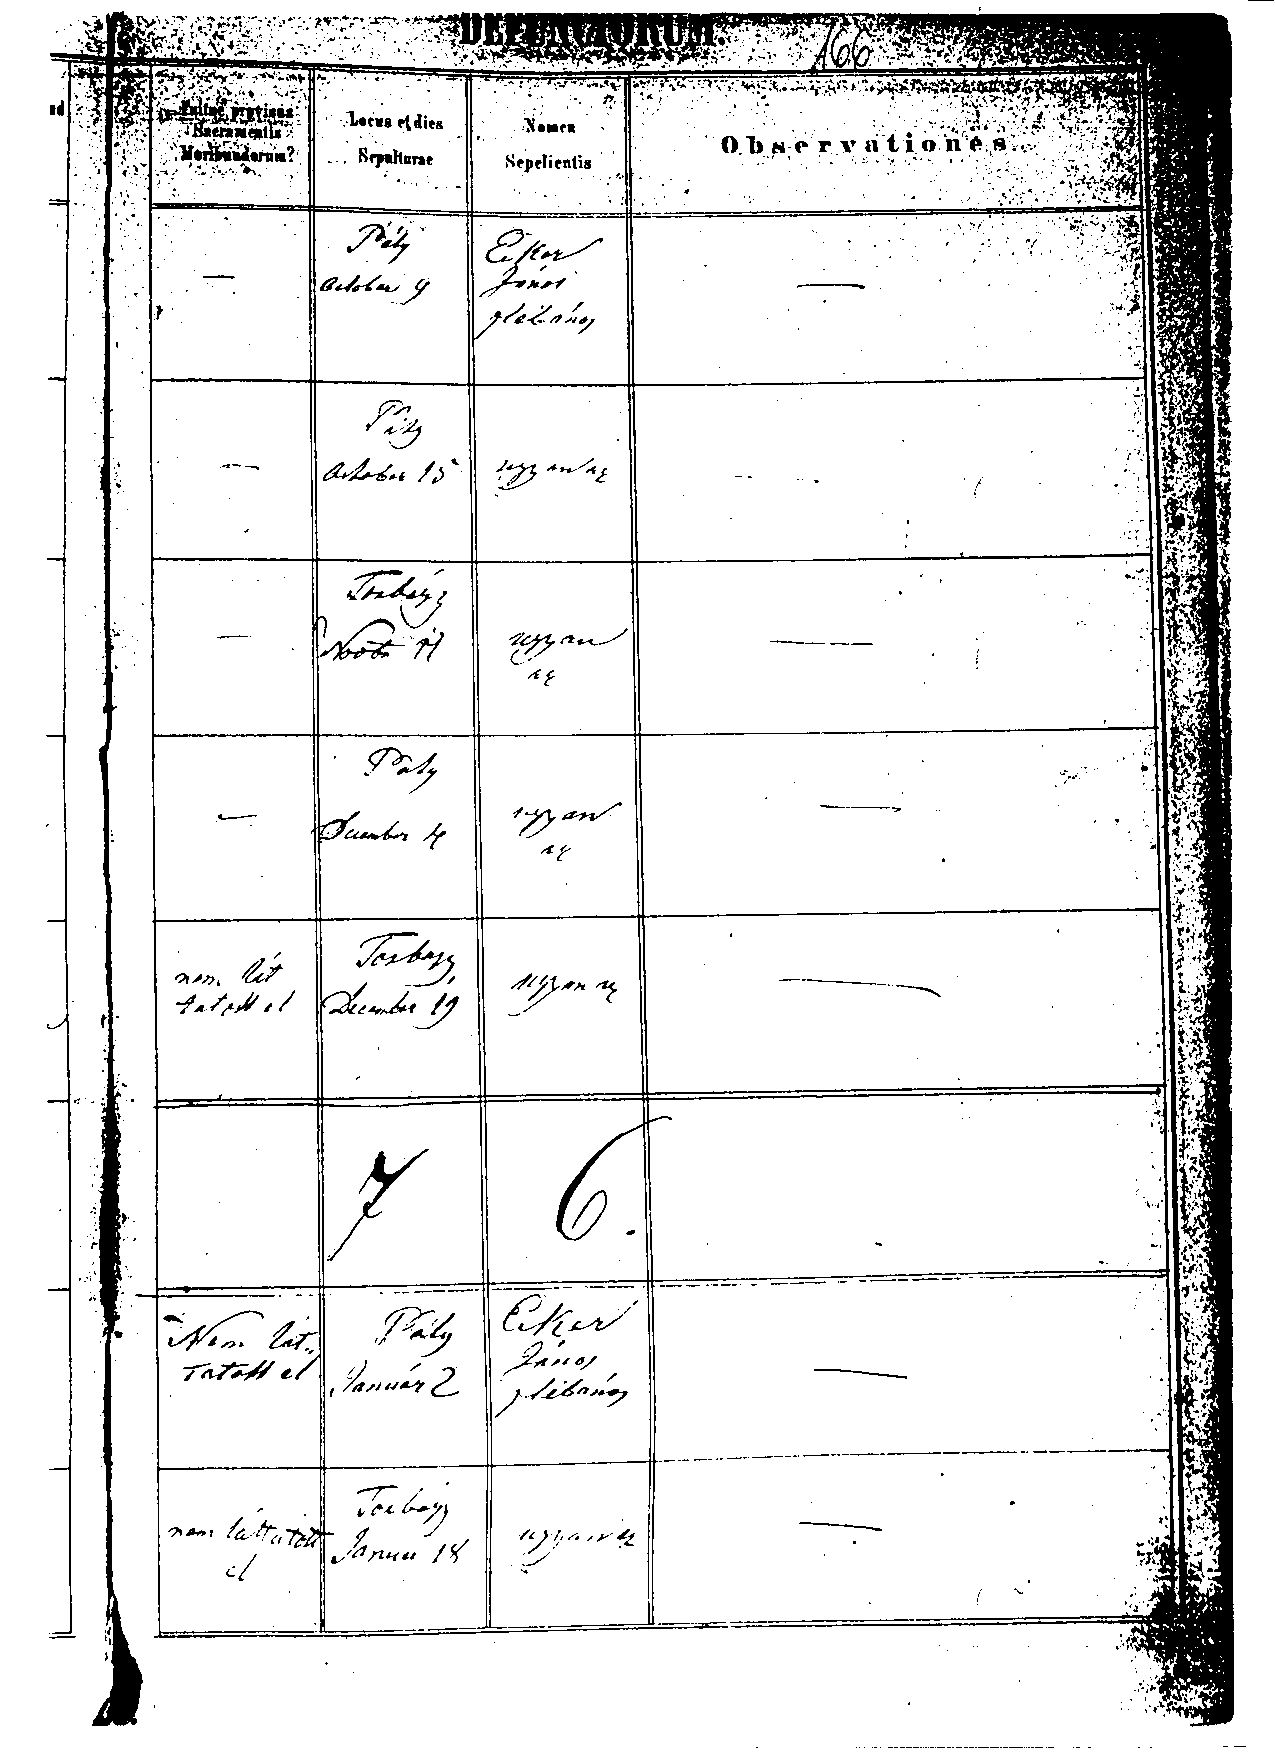 DEFUNCTORUM.
166
Sacramentis
Moribundorum?
Locus et dies
Sepulturae
Nomen
Sepelientis
Observationes.
—
Páty
October 9
Eker
János
plébános
—
—
Páty
October 15
ugyanaz
—
Torbágy
Novb. 11
ugyan
az
—
—
Páty
December 4
ugyan
az
—
nem lát
tatott el
Torbágy
December 19
ugyanaz
—
7 6.
Nem lát„
tatott el
Páty
Január 2
Eker
János
plébános
—
nem láttatott
el
Torbágy
Január 18
ugyanaz
—